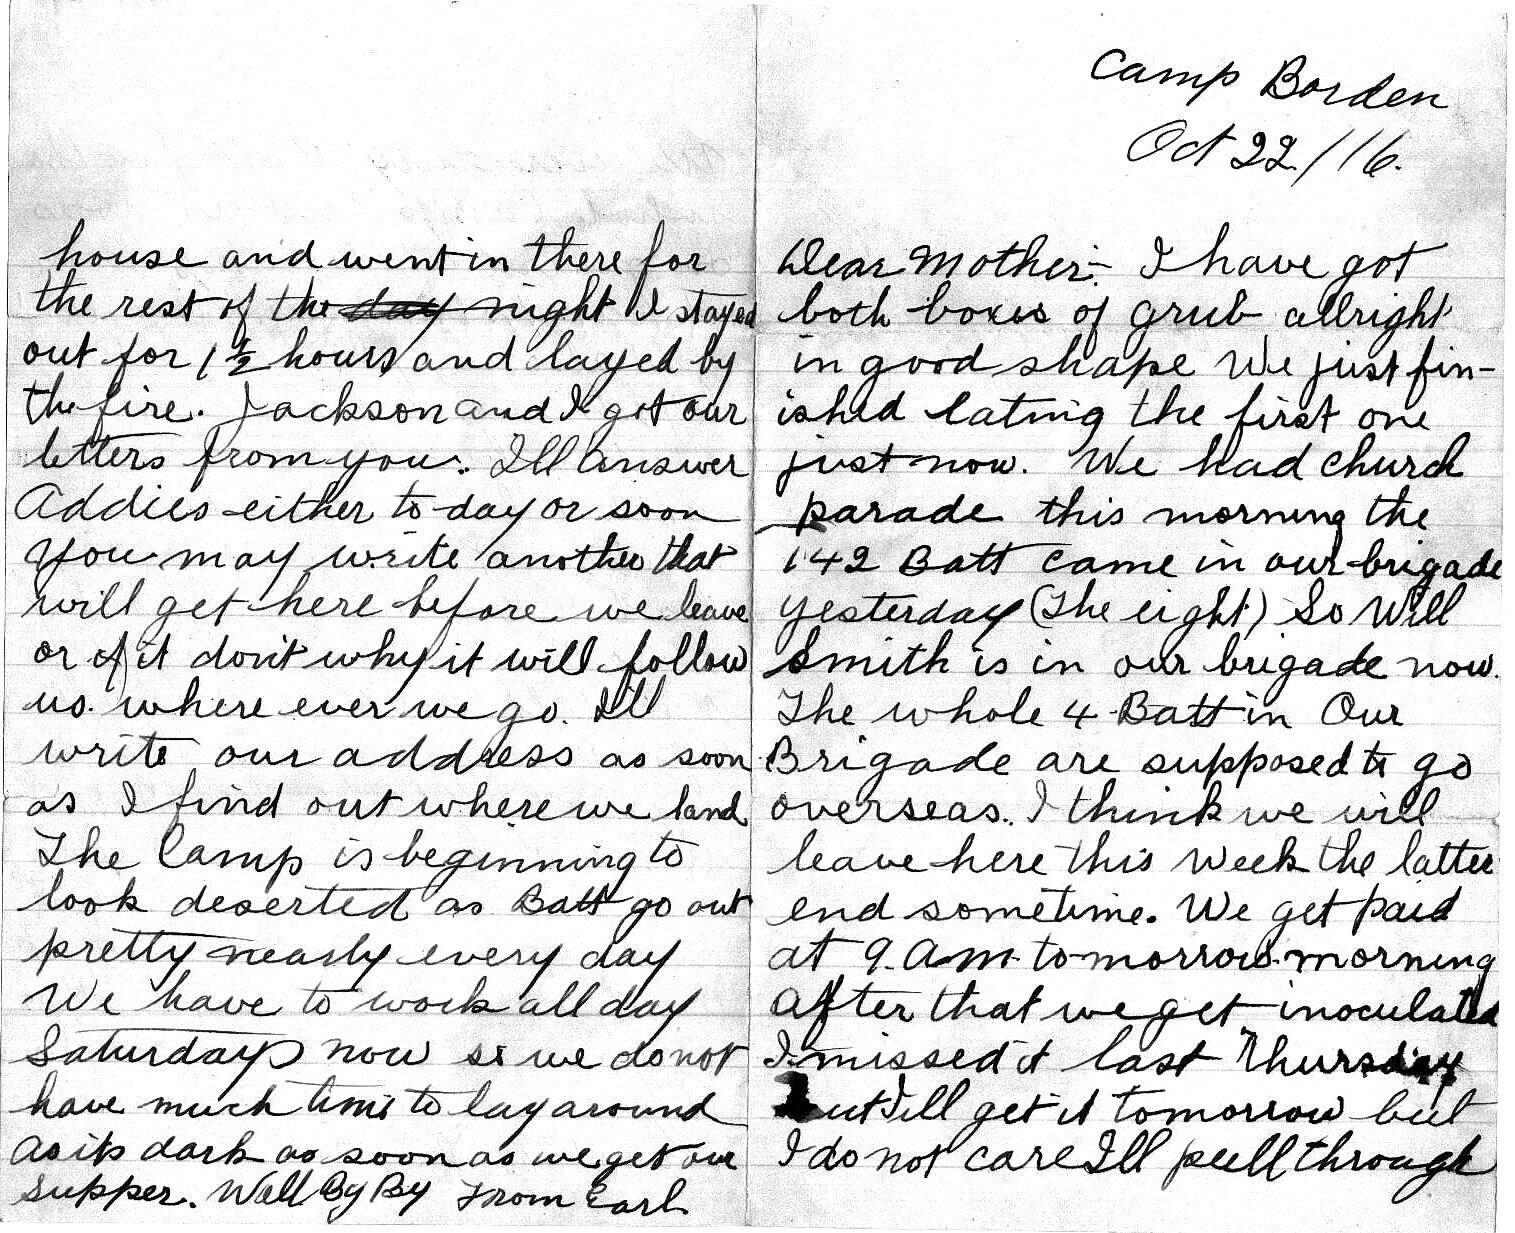 Camp Borden
Oct 22/16.
Dear Mother:- I have got
both boxes of grub allright
in good shape We just fin-
ished eating the first one
just now. We had church
parade this morning the
142 Batt came in our brigade
yesterday (The eight) So Will
Smith is in our brigade now.
The whole 4 Batt in Our
Brigade are supposed to go
overseas. I think we will
leave here this week the latter
end sometime. We get paid
at 9. a.m. tomorrow morning
after that we get inoculated
I missed it last Thursday
but I'll get it tomorrow but
I do not care I'll pull through
house and went in there for
the rest of the day night I stayed
out for 1 1/2 hours and layed by
the fire. Jackson and I got our
letters from you. I'll answer
Addies either to-day or soon
you may write another that
will get here before we leave
or if it don't why it will follow
us where ever we go. I'll
write our address as soon
as I find out where we land
The Camp is beginning to
look deserted as Batt go out
pretty nearly every day
We have to work all day
Saturday now so we do not
have much time to lay around
as its dark as soon as we get our
supper. Well By By From Earl